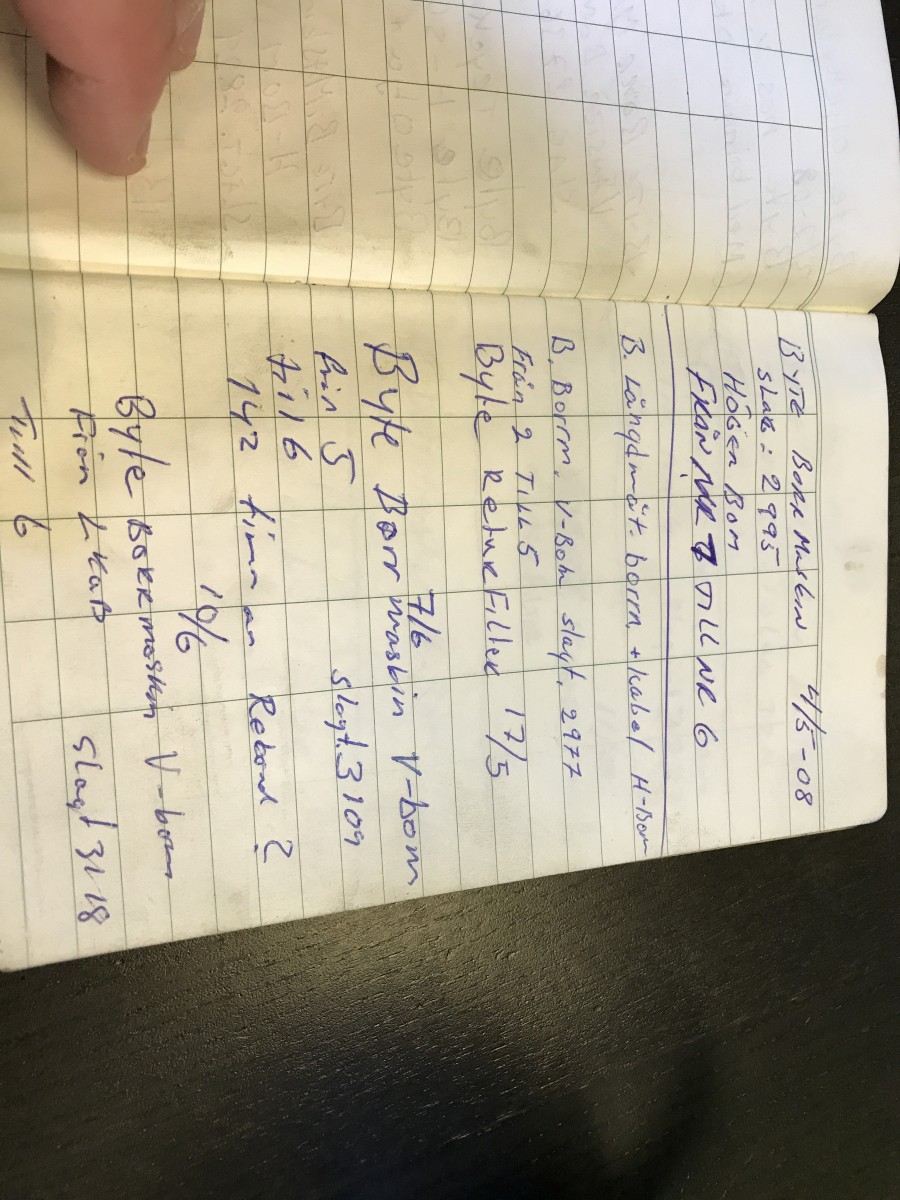 BYTE BORR MASKIN 4/5-08
SLAG: 2995
HÖGER BOM
FRÅN NR 7 TILL NR 6
B. Längdmät. borrm. + kabel H-Bom
B. Borrm. V-Bom slagt. 2977
Från 2 TILL 5
Byte Retur Filter 17/5
7/6
Byte Borrmaskin V-bom
från 5 slagt. 3109
till 6
142 timmar Rebond ?
10/6
Byte BORRmaskin V-bom
Från LKAB slagt 3118
Till 6